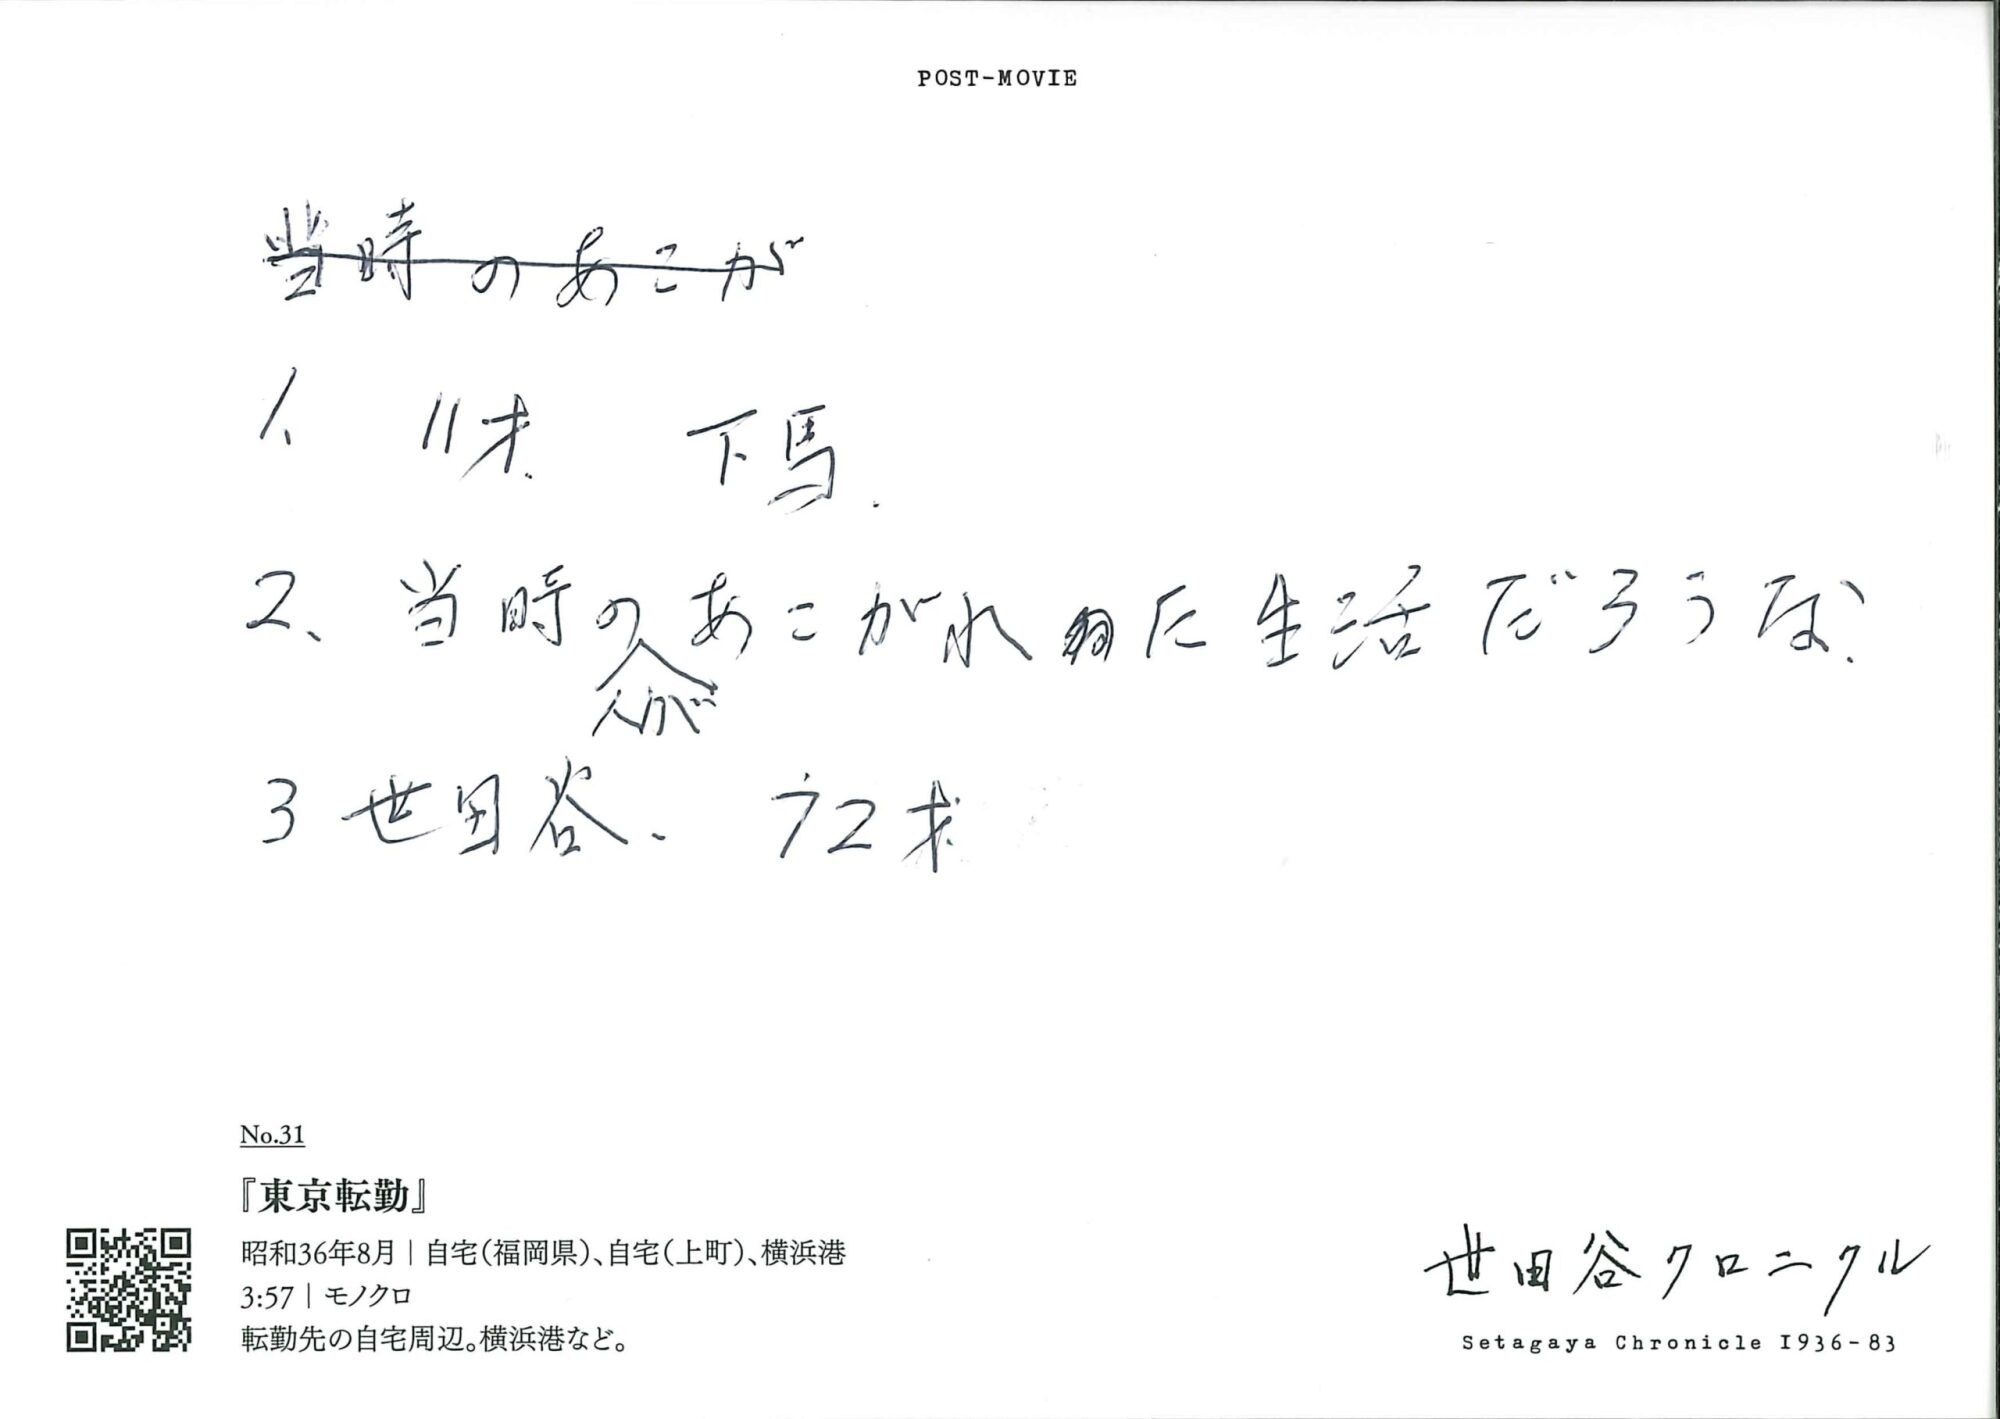 POST-MOVIE
当時のあこが
1、 11才. 下馬.
2、当時の人があこがれた生活だろうな.
3 世田谷、 72才.
No.31
『東京転勤』
昭和36年8月｜自宅（福岡県）、自宅（上町）、横浜港
3:57｜モノクロ
転勤先の自宅周辺。横浜港など。
世田谷クロニクル
Setagaya Chronicle 1936-83